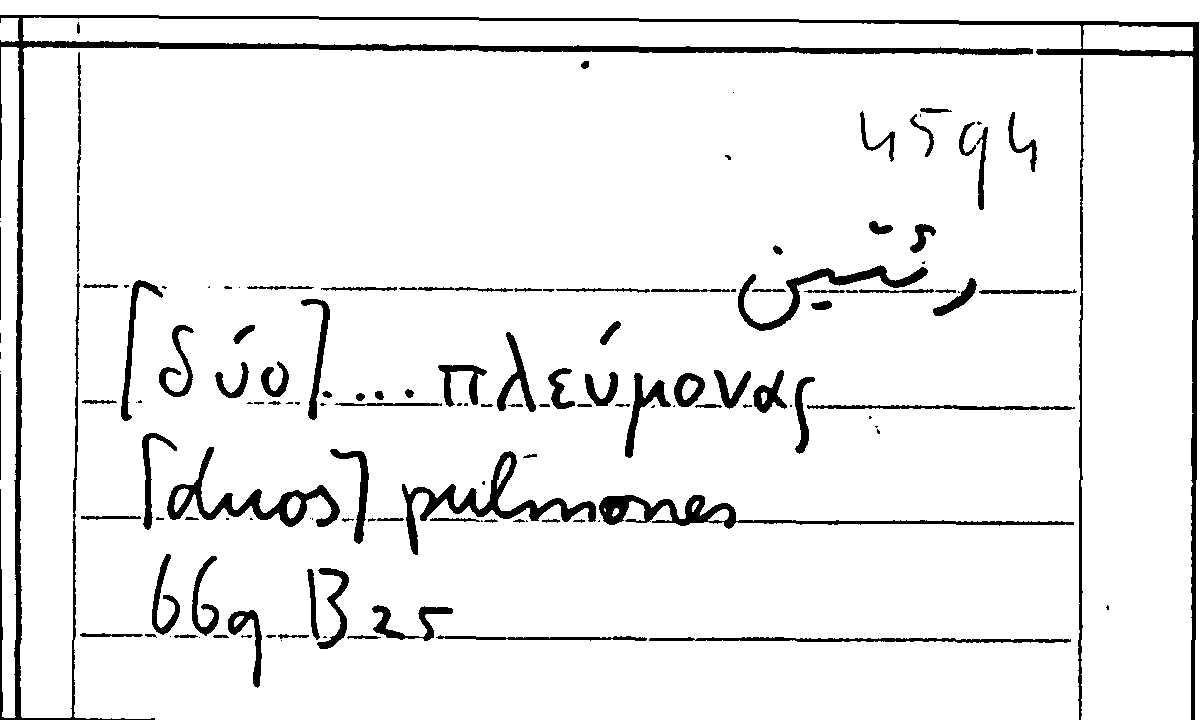 4594
رئتين
[δύο].... πλεύμονας
[duos] pulmones
669 B 25